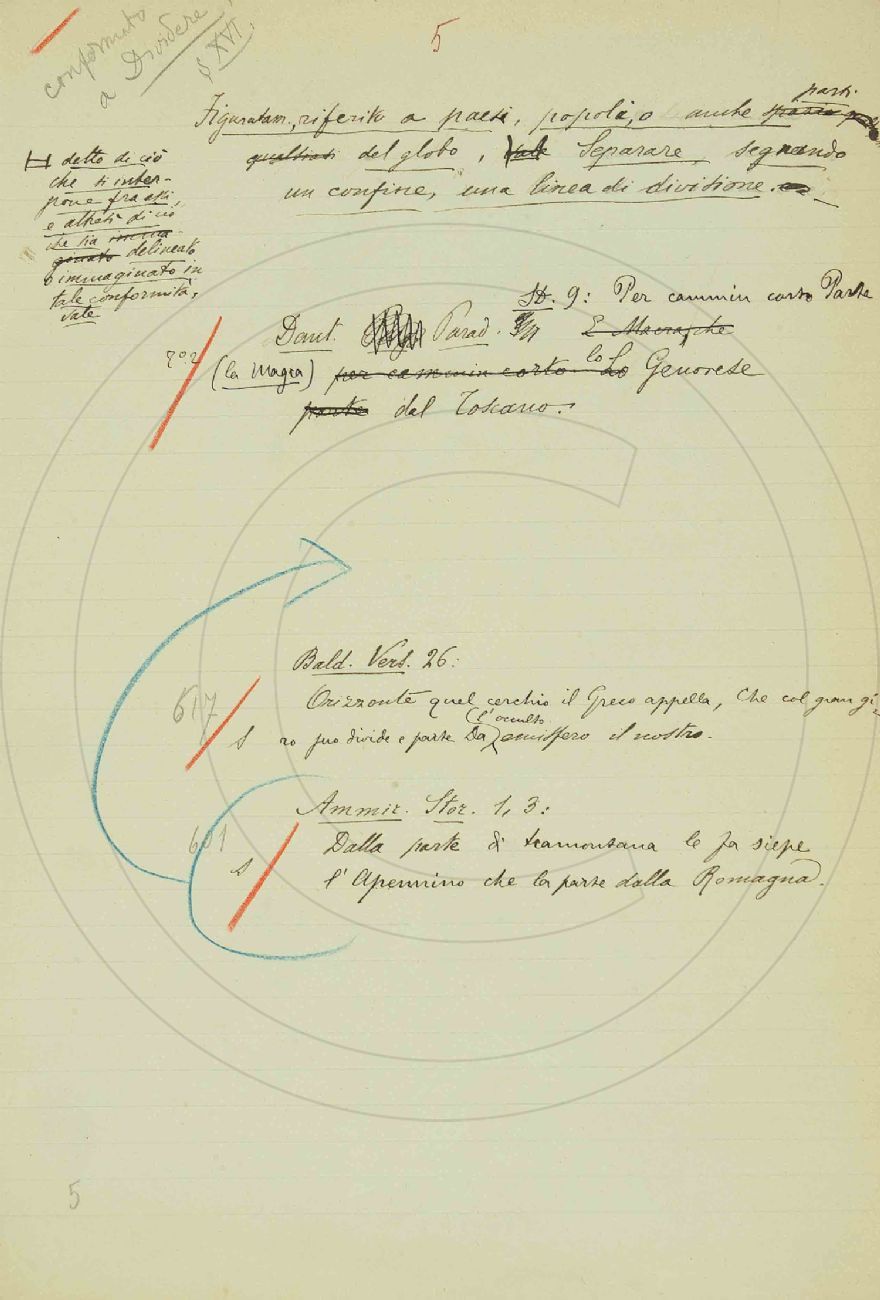 5
conformato
a Dividere
§ XVI.
parti
Figuratam., riferito a paesi, popoli, o anche spazio
qualsiasi del globo, vale Separare, segnando
un confine, una linea di divisione.
detto di ciò
che si inter-
pone fra essi,
e altresì di ciò
che sia immagi-
ginato delineato
o immaginato in
tale conformità,
vale
St. 9: Per cammin corto Parte
Dant. Parad. E Macra, che
(la Magra) per cammin corto lo Lo Genovese
parte dal Toscano.
Bald. Vers. 26:
617
Orizzonte quel cerchio il Greco appella, Che col gran gi-
(l'occulto
S ro suo divide e parte Da emisfero il nostro.
Ammir. Stor. 1, 3:
601
Dalla parte di tramontana le fa siepe
S l'Apennino che la parte dalla Romagna.
5